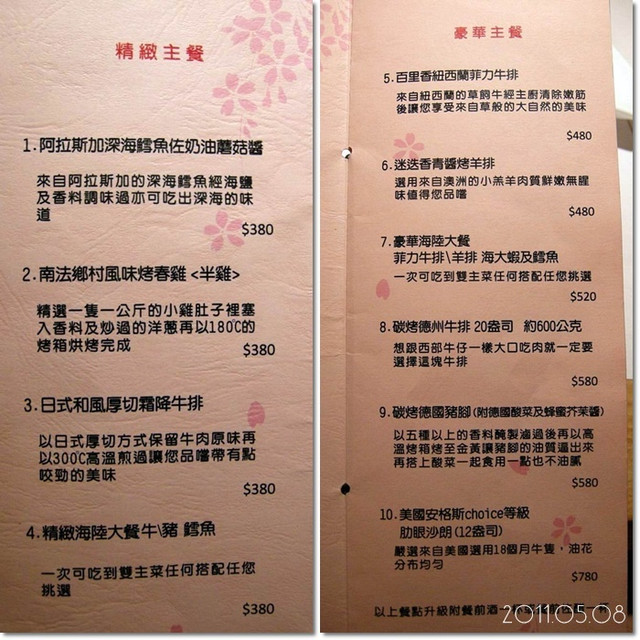 精緻主餐
1.阿拉斯加深海鱈魚佐奶油蘑菇醬
來自阿拉斯加的深海鱈魚經海鹽
及香料調味過亦可吃出深海的味
道
$380
2.南法鄉村風味烤春雞<半雞>
精選一隻一公斤的小雞肚子裡塞
入香料及炒過的洋蔥再以180℃的
烤箱烘烤完成
$380
3.日式和風厚切霜降牛排
以日式厚切方式保留牛肉原味再
以300℃高溫煎過讓您品嚐帶有點
咬勁的美味
$380
4.精緻海陸大餐牛\豬 鱈魚
一次可吃到雙主菜任何搭配任您
挑選
$380
豪華主餐
5.百里香紐西蘭菲力牛排
來自紐西蘭的草飼牛經主廚清除嫩筋
後讓您享受來自草般的大自然的美味
$480
6.迷迭香青醬烤羊排
選用來自澳洲的小羔羊肉質鮮嫩無腥
味值得您品嚐
$480
7.豪華海陸大餐
菲力牛排\羊排 海大蝦及鱈魚
一次可吃到雙主菜任何搭配任您挑選
$520
8.碳烤德州牛排 20盎司 約600公克
想跟西部牛仔一樣大口吃肉就一定要
選擇這塊牛排
$580
9.碳烤德國豬腳(附德國酸菜及蜂蜜芥茉醬)
以五種以上的香料醃製滷過後再以高
溫烤箱烤至金黃讓豬腳的油質逼出來
再搭上酸菜一起食用一點也不油膩
$580
10.美國安格斯choice等級
肋眼沙朗(12盎司)
嚴選來自美國選用18個月牛隻，油花
分布均勻
$780
以上餐點升級附餐前酒
2011.05.08